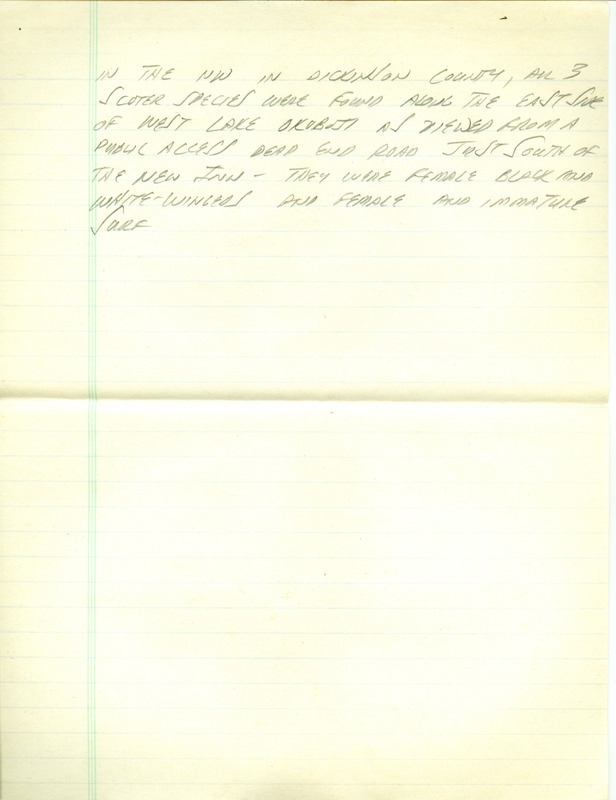 IN THE NW IN DICKINSON COUNTY, ALL 3
SCOTER SPECIES WERE FOUND ALONG THE EAST SIDE
OF WEST LAKE OKOBOJI AS VIEWED FROM A
PUBLIC ACCESS DEAD END ROAD JUST SOUTH OF
THE NEW INN - THEY WERE FEMALE BLACK AND
WHITE-WINGEDS AND FEMALE AND IMMATURE
SURF